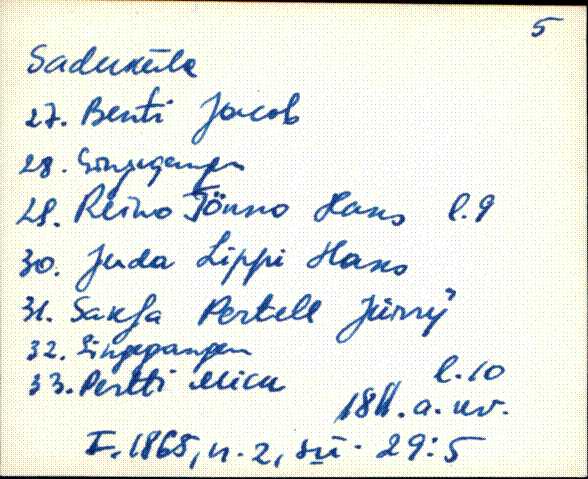 5
Saduküla
27. Benti Jacob
28. Eingegangen
29. Reino Tönno Hans l. 9
30. Juda Lippi Hans
31. Saksa Pertell Jürry
32. Eingegangen
33. Pertti Mick l. 10
1811. a. rev.
I. 1865, n. 2, sü. 29:5